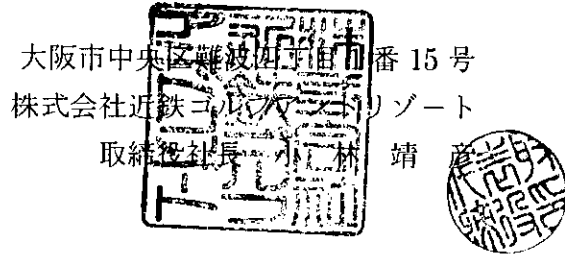 大阪市中央区難波四丁目1番 15 号
株式会社近鉄ゴルフアンドリゾート
取締役社長 小 林 靖 彦